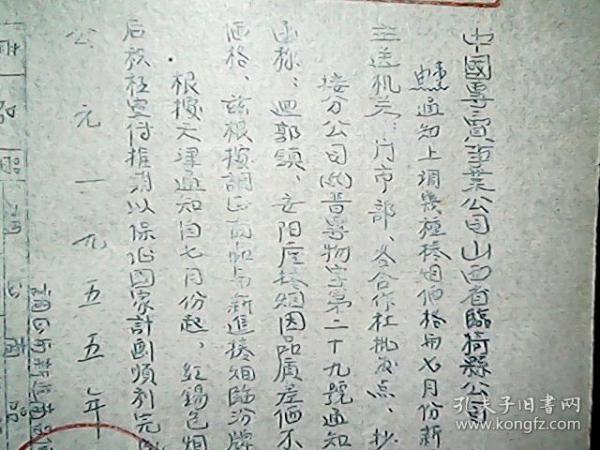 中國專賣事業公司山西省臨猗縣公司
通知上調幾種捲烟價格与七月份新
主送机关：门市部、各合作社批发点、抄
接分公司(55)晋專物字第二十九號通知
函称：迴郭鎮、安阳產捲烟因品質差価不
価格、兹根據調正的和与新進捲烟臨汾牌
根據天津通知自七月份起，紅錫包烟
后放柜宣传推销以保征国家計劃順利完
公元一九五五年
孔夫子旧书网
www.kongfz.com